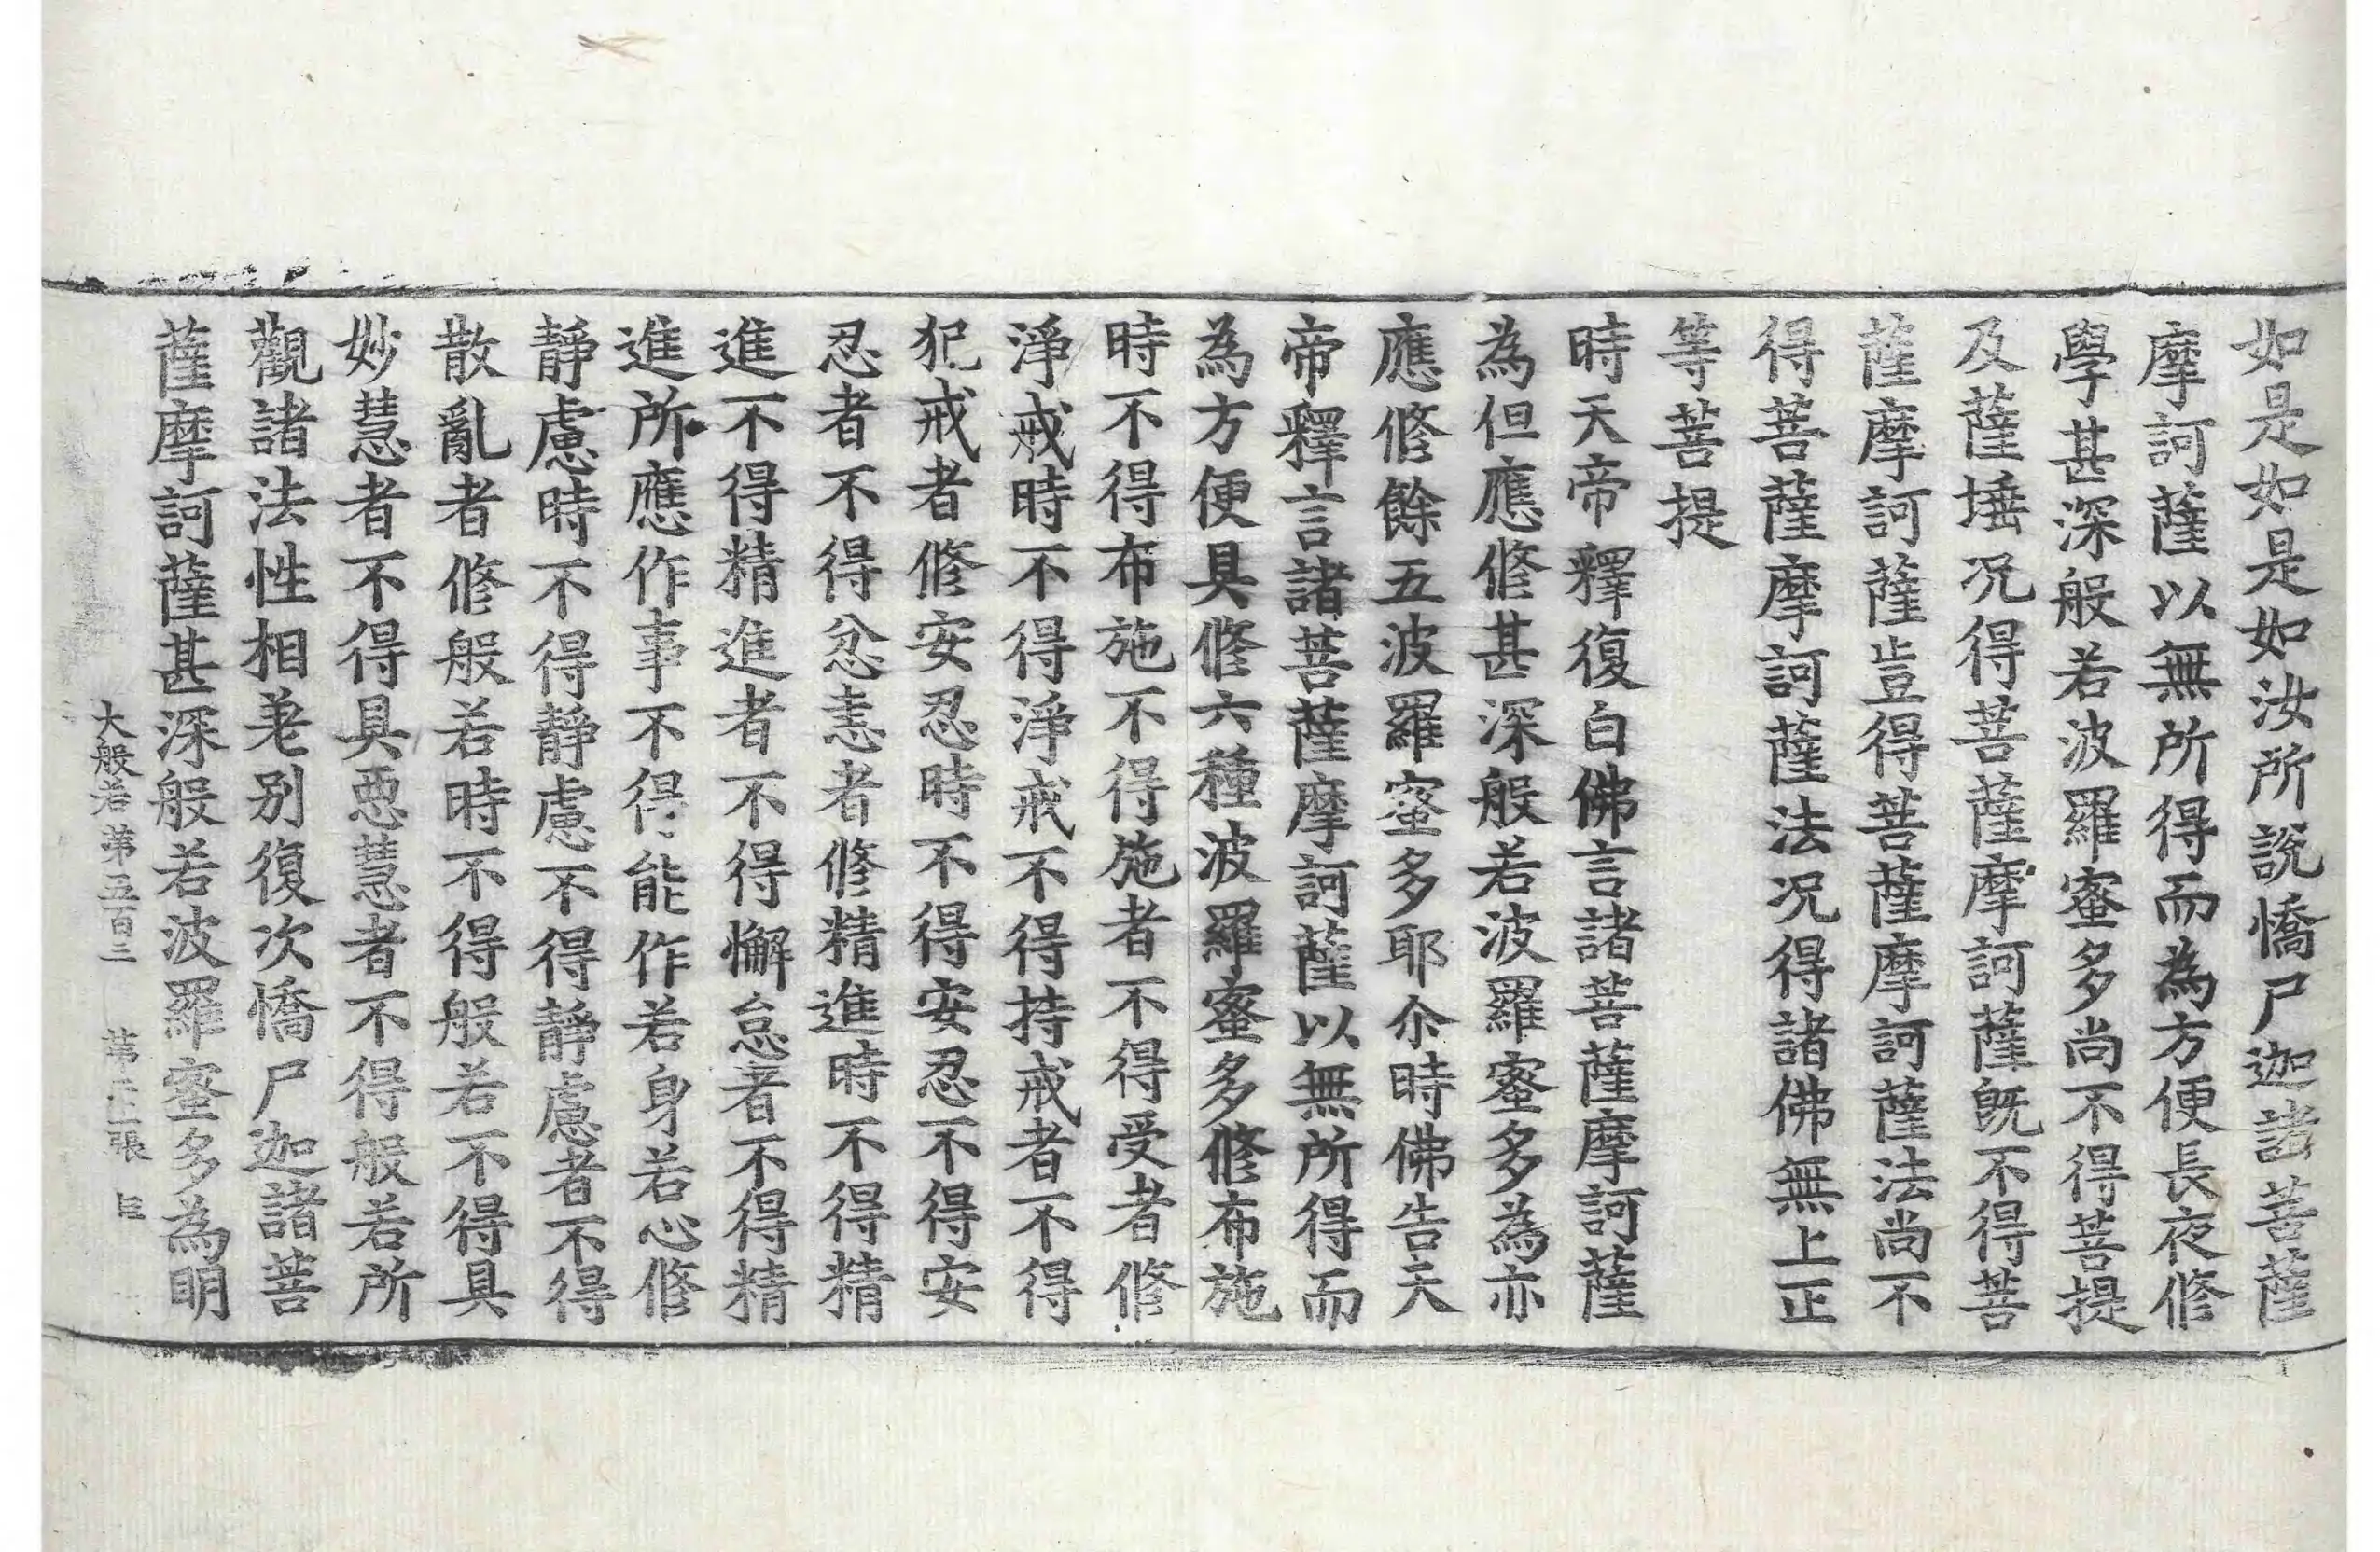 如是如是如汝所說憍尸迦諸菩薩
摩訶薩以無所得而為方便長夜修
學甚深般若波羅蜜多尚不得菩提
及薩埵況得菩薩摩訶薩旣不得菩
薩摩訶薩豈得菩薩摩訶薩法尚不
得菩薩摩訶薩法況得諸佛無上正
等菩提
時天帝釋復白佛言諸菩薩摩訶薩
為但應修甚深般若波羅蜜多為亦
應修餘五波羅蜜多耶尒時佛告天
帝釋言諸菩薩摩訶薩以無所得而
為方便具修六種波羅蜜多修布施
時不得布施不得施者不得受者修
淨戒時不得淨戒不得持戒者不得
犯戒者修安忍時不得安忍不得安
忍者不得忿恚者修精進時不得精
進不得精進者不得懈怠者不得精
進所應作事不得能作若身若心修
靜慮時不得靜慮不得靜慮者不得
散亂者修般若時不得般若不得具
妙慧者不得具惡慧者不得般若所
觀諸法性相差別復次憍尸迦諸菩
薩摩訶薩甚深般若波羅蜜多為明
大般若第五百二 第 張